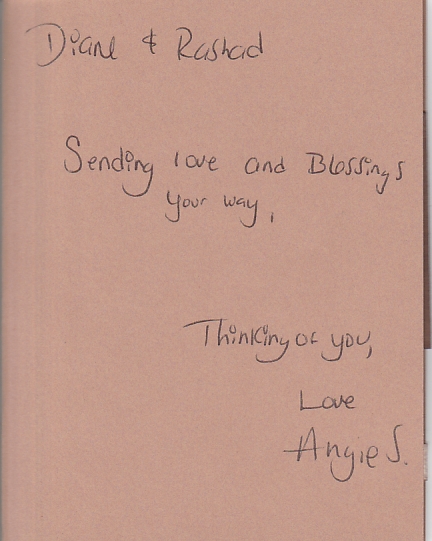 Diane & Rashad
Sending love and Blessings
your way,
Thinking of you,
Love
Angie S.